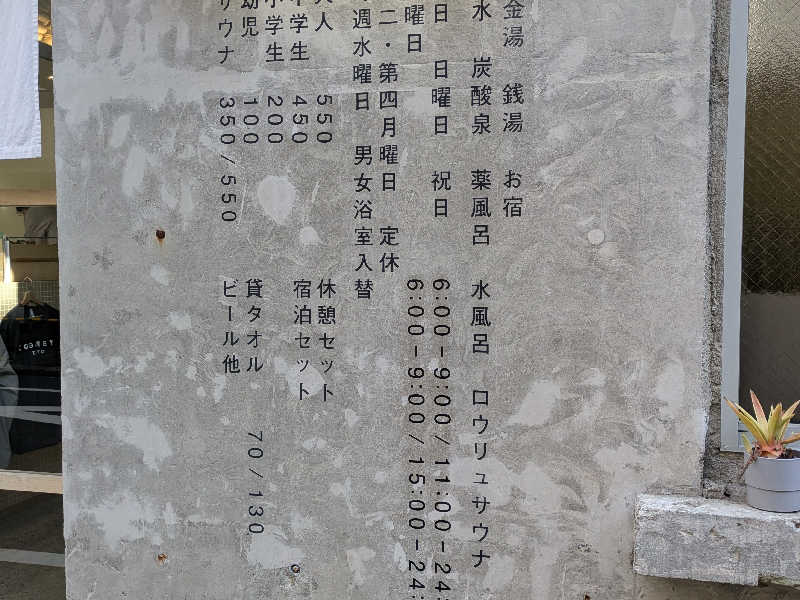 金湯 銭湯 お宿
水 炭酸泉 薬風呂 水風呂 ロウリュサウナ
日 日曜日 祝日 6:00-9:00/11:00-24:
曜日 6:00-9:00/15:00-24:
二・第四月曜日 定休
週水曜日 男女浴室入替
大人 550 休憩セット
中学生 450 宿泊セット
小学生 200
幼児 100 貸タオル 70/130
サウナ 350/550 ビール他